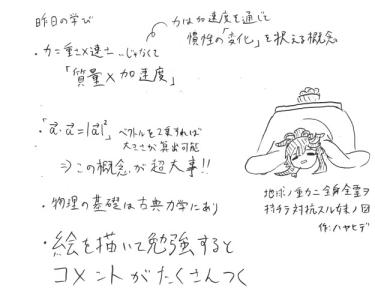 昨日の学び
力は加速度を通じて
慣性の「変化」を捉える概念
・力=重さ×速さ…じゃなくて
「質量×加速度」
・「a⃗・a⃗=|a⃗|²」ベクトルを2乗すれば
大きさが算出可能
⇒この概念が超大事!!
・物理の基礎は古典力学にあり
・絵を描いて勉強すると
コメントがたくさんつく
地球ノ重力ニ全身全霊ヲ
持チテ対抗スル妹ノ図
作:ハヤヒデ